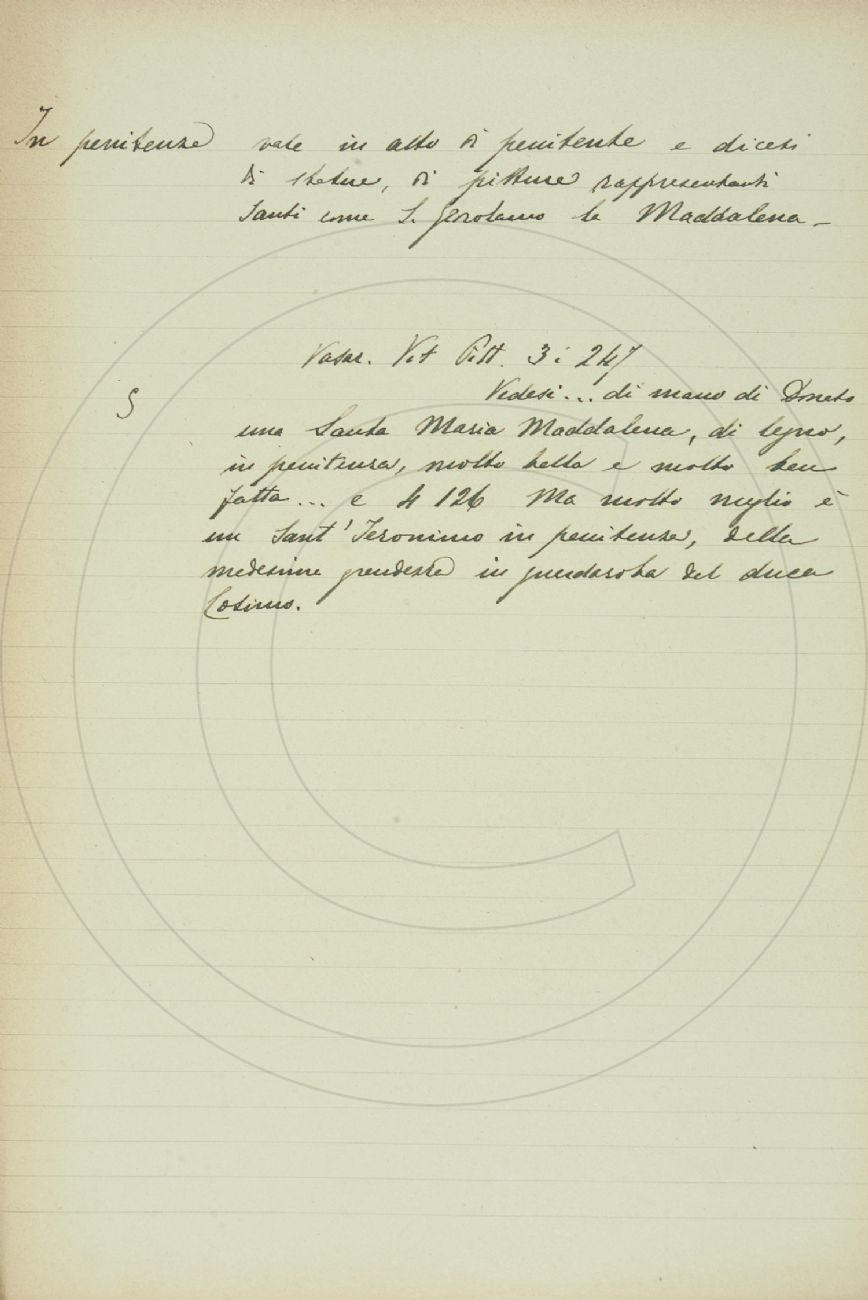 In penitenza vale in atto di penitente e dicesi
di statue, di pitture rappresentanti
Santi come S. Gerolamo la Maddalena –
Vasar. Vit Pitt. 3: 247
§ Vedesi... di mano di Donato
una Santa Maria Maddalena, di legno,
in penitenza, molto bella e molto ben
fatta... e 4 126 Ma molto meglio è
un Sant' Jeronimo in penitenza, della
medesima grandezza in guardaroba del duca
Cosimo.